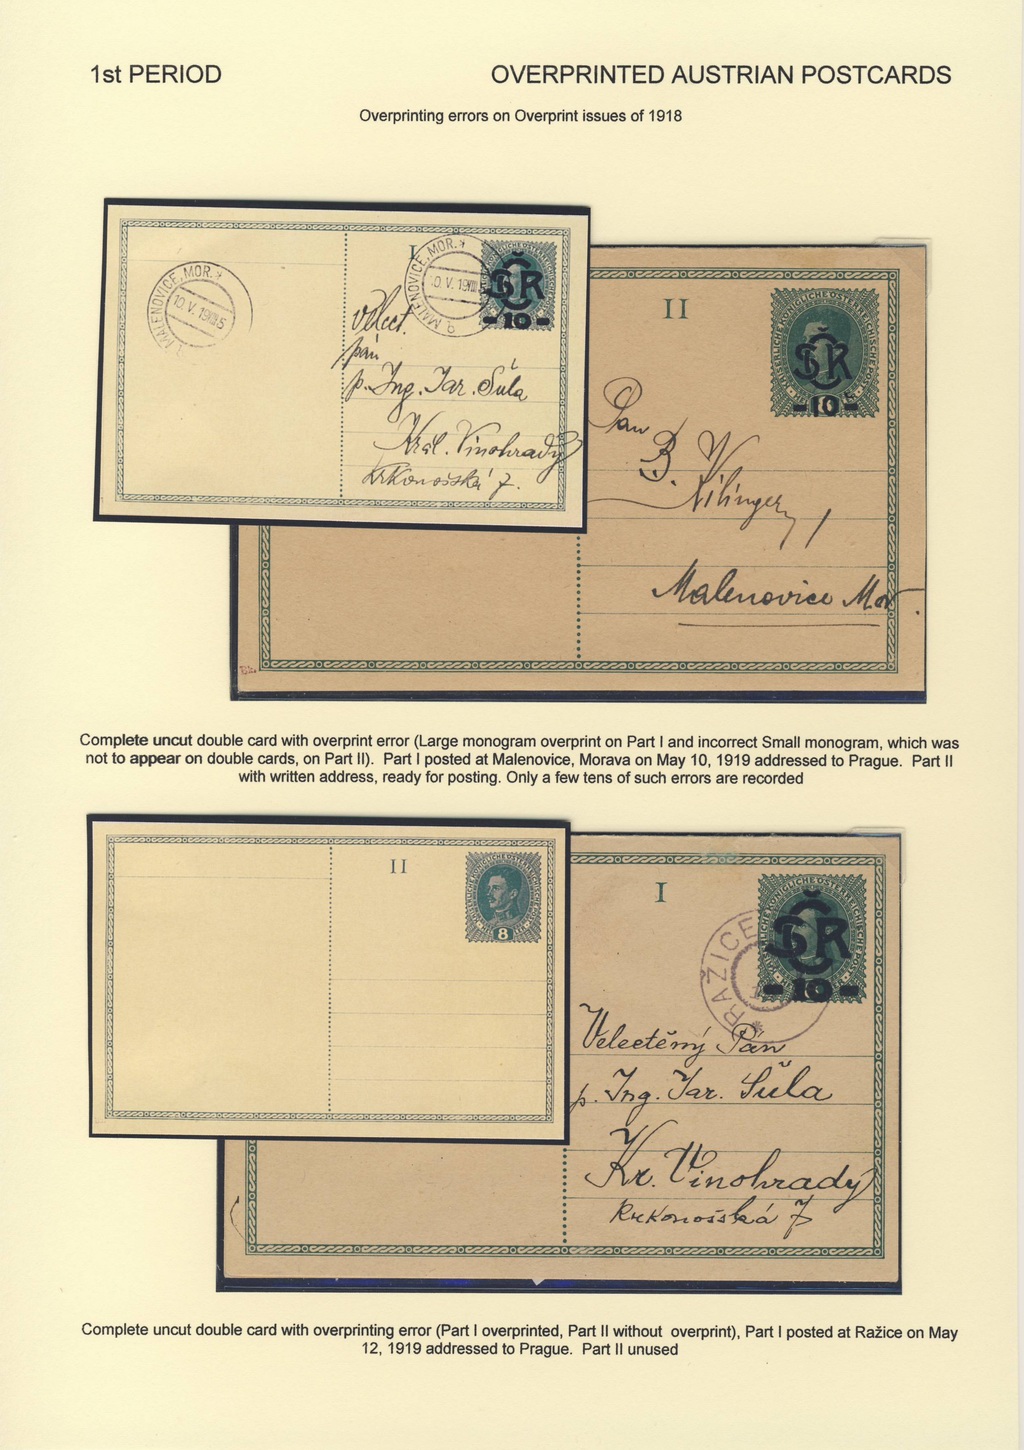 1st PERIOD
OVERPRINTED AUSTRIAN POSTCARDS
Overprinting errors on Overprint issues of 1918
MALENOVICE, MOR.
10 V. 19 5
I
MALENOVICE, MOR.
ČSR
-10-
velect.
pán
p. Ing. Jar. Šula
Král. Vinohrady
Krkonošská 7.
II
ČSR
-10-
Pan
B.
Malenovice Mor.
Complete uncut double card with overprint error (Large monogram overprint on Part I and incorrect Small monogram, which was
not to appear on double cards, on Part II). Part I posted at Malenovice, Morava on May 10, 1919 addressed to Prague. Part II
with written address, ready for posting. Only a few tens of such errors are recorded
II
8
I
RAŽICE
ČSR
-10-
Velectěný Pán
p. Ing. Jar. Šula
Kr. Vinohrady
Krkonošská 7
Complete uncut double card with overprinting error (Part I overprinted, Part II without overprint), Part I posted at Ražice on May
12, 1919 addressed to Prague. Part II unused